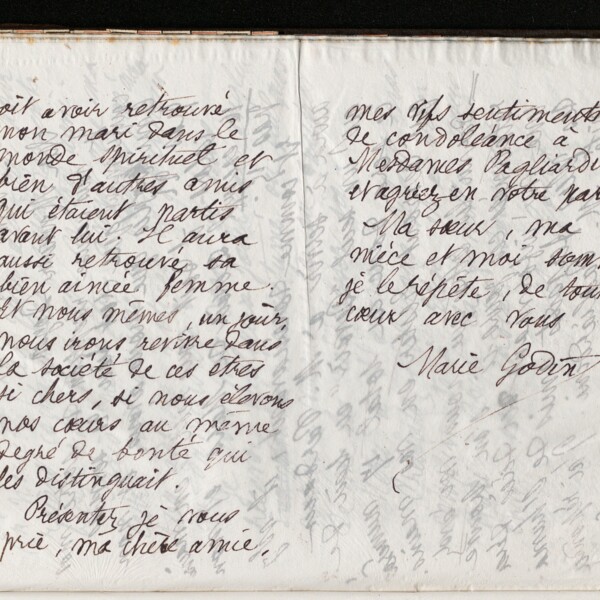 oit avoir retrouvé
mon mari dans le
monde spirituel et
bien d'autres amis
qui étaient partis
avant lui. Il aura
aussi retrouvé sa
bien aimée femme.
Et nous mêmes, un jour,
nous irons revivre dans
la société de ces êtres
si chers, si nous élevons
nos cœurs au même
degré de bonté qui
les distinguait.
Présentez je vous
prie, ma chère amie,
mes vifs sentiments
de condoléance à
Mesdames Pagliardi
et agréez en votre par
Ma sœur, ma
nièce et moi som
je le répète, de tou
cœur avec vous
Marie Godin